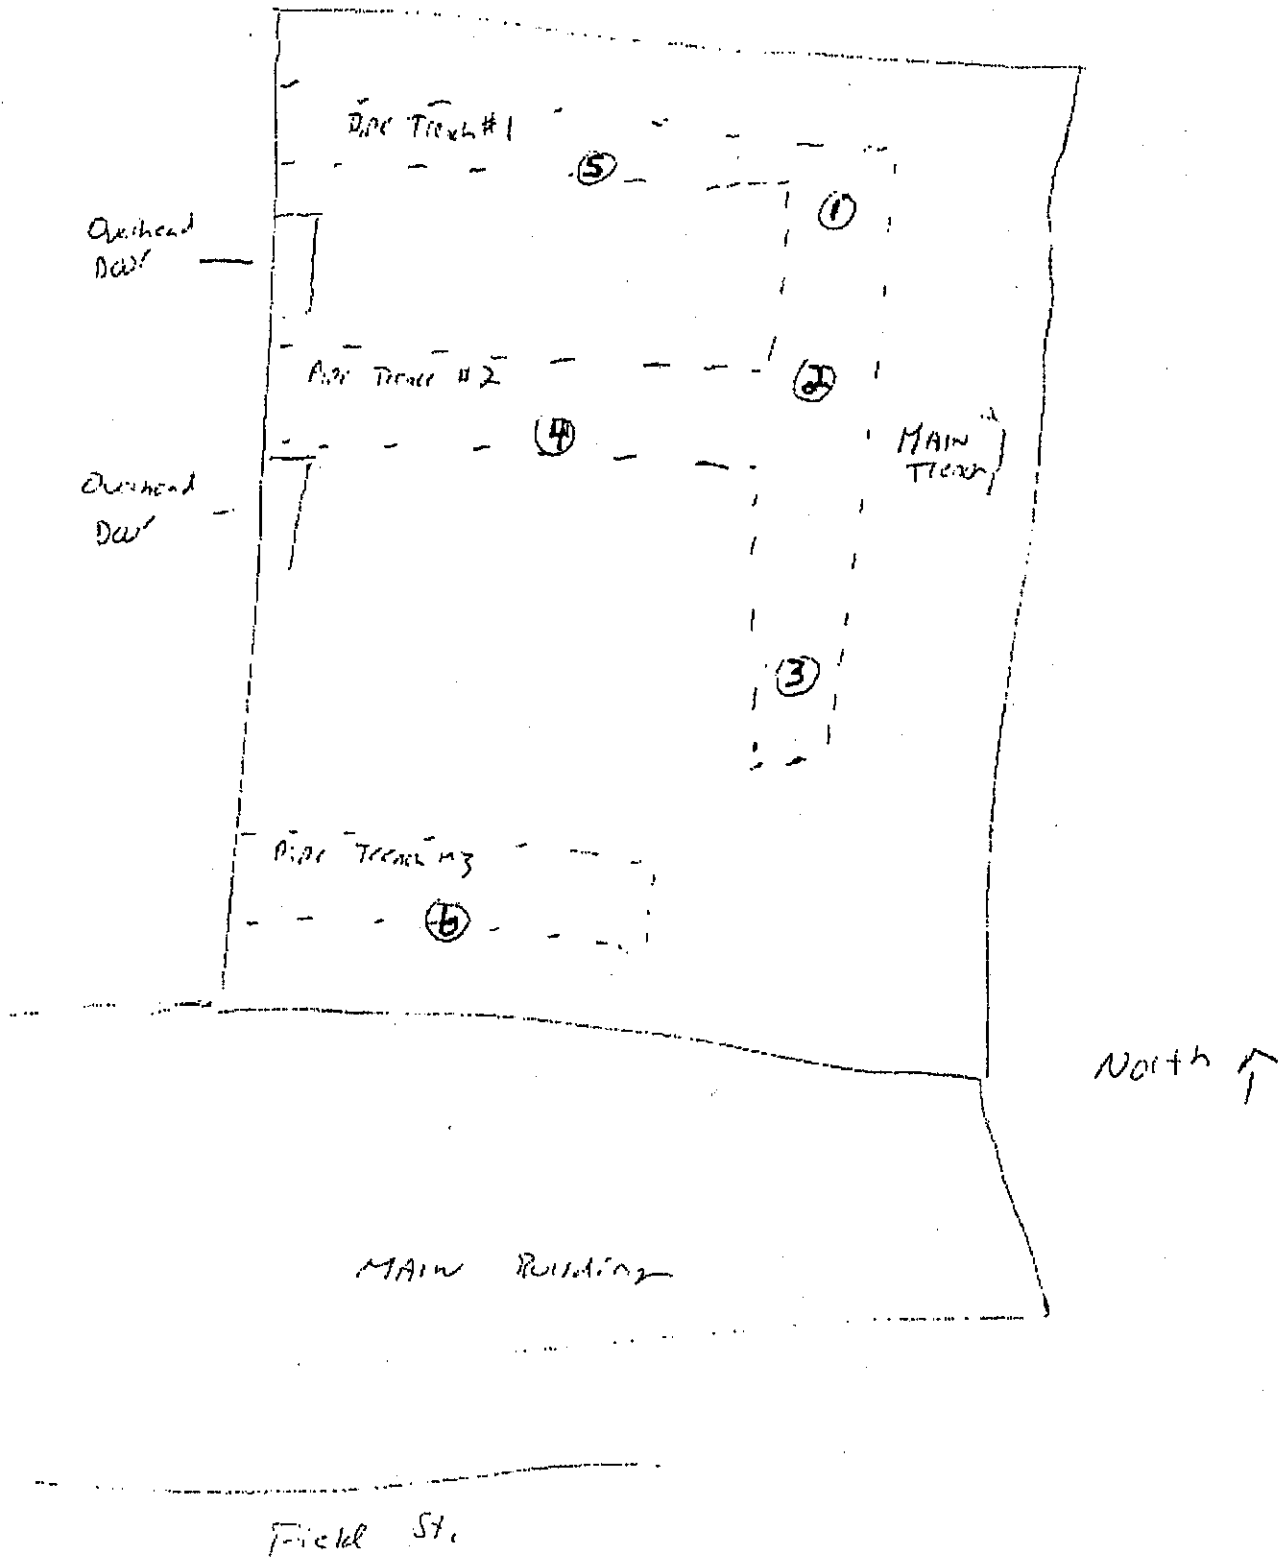 Pipe Trench #1
5
1
Overhead
Door
Pipe Trench #2
2
4
MAIN
Trench
Overhead
Door
3
Pipe Trench #3
6
North ↑
MAIN Building
Field St.